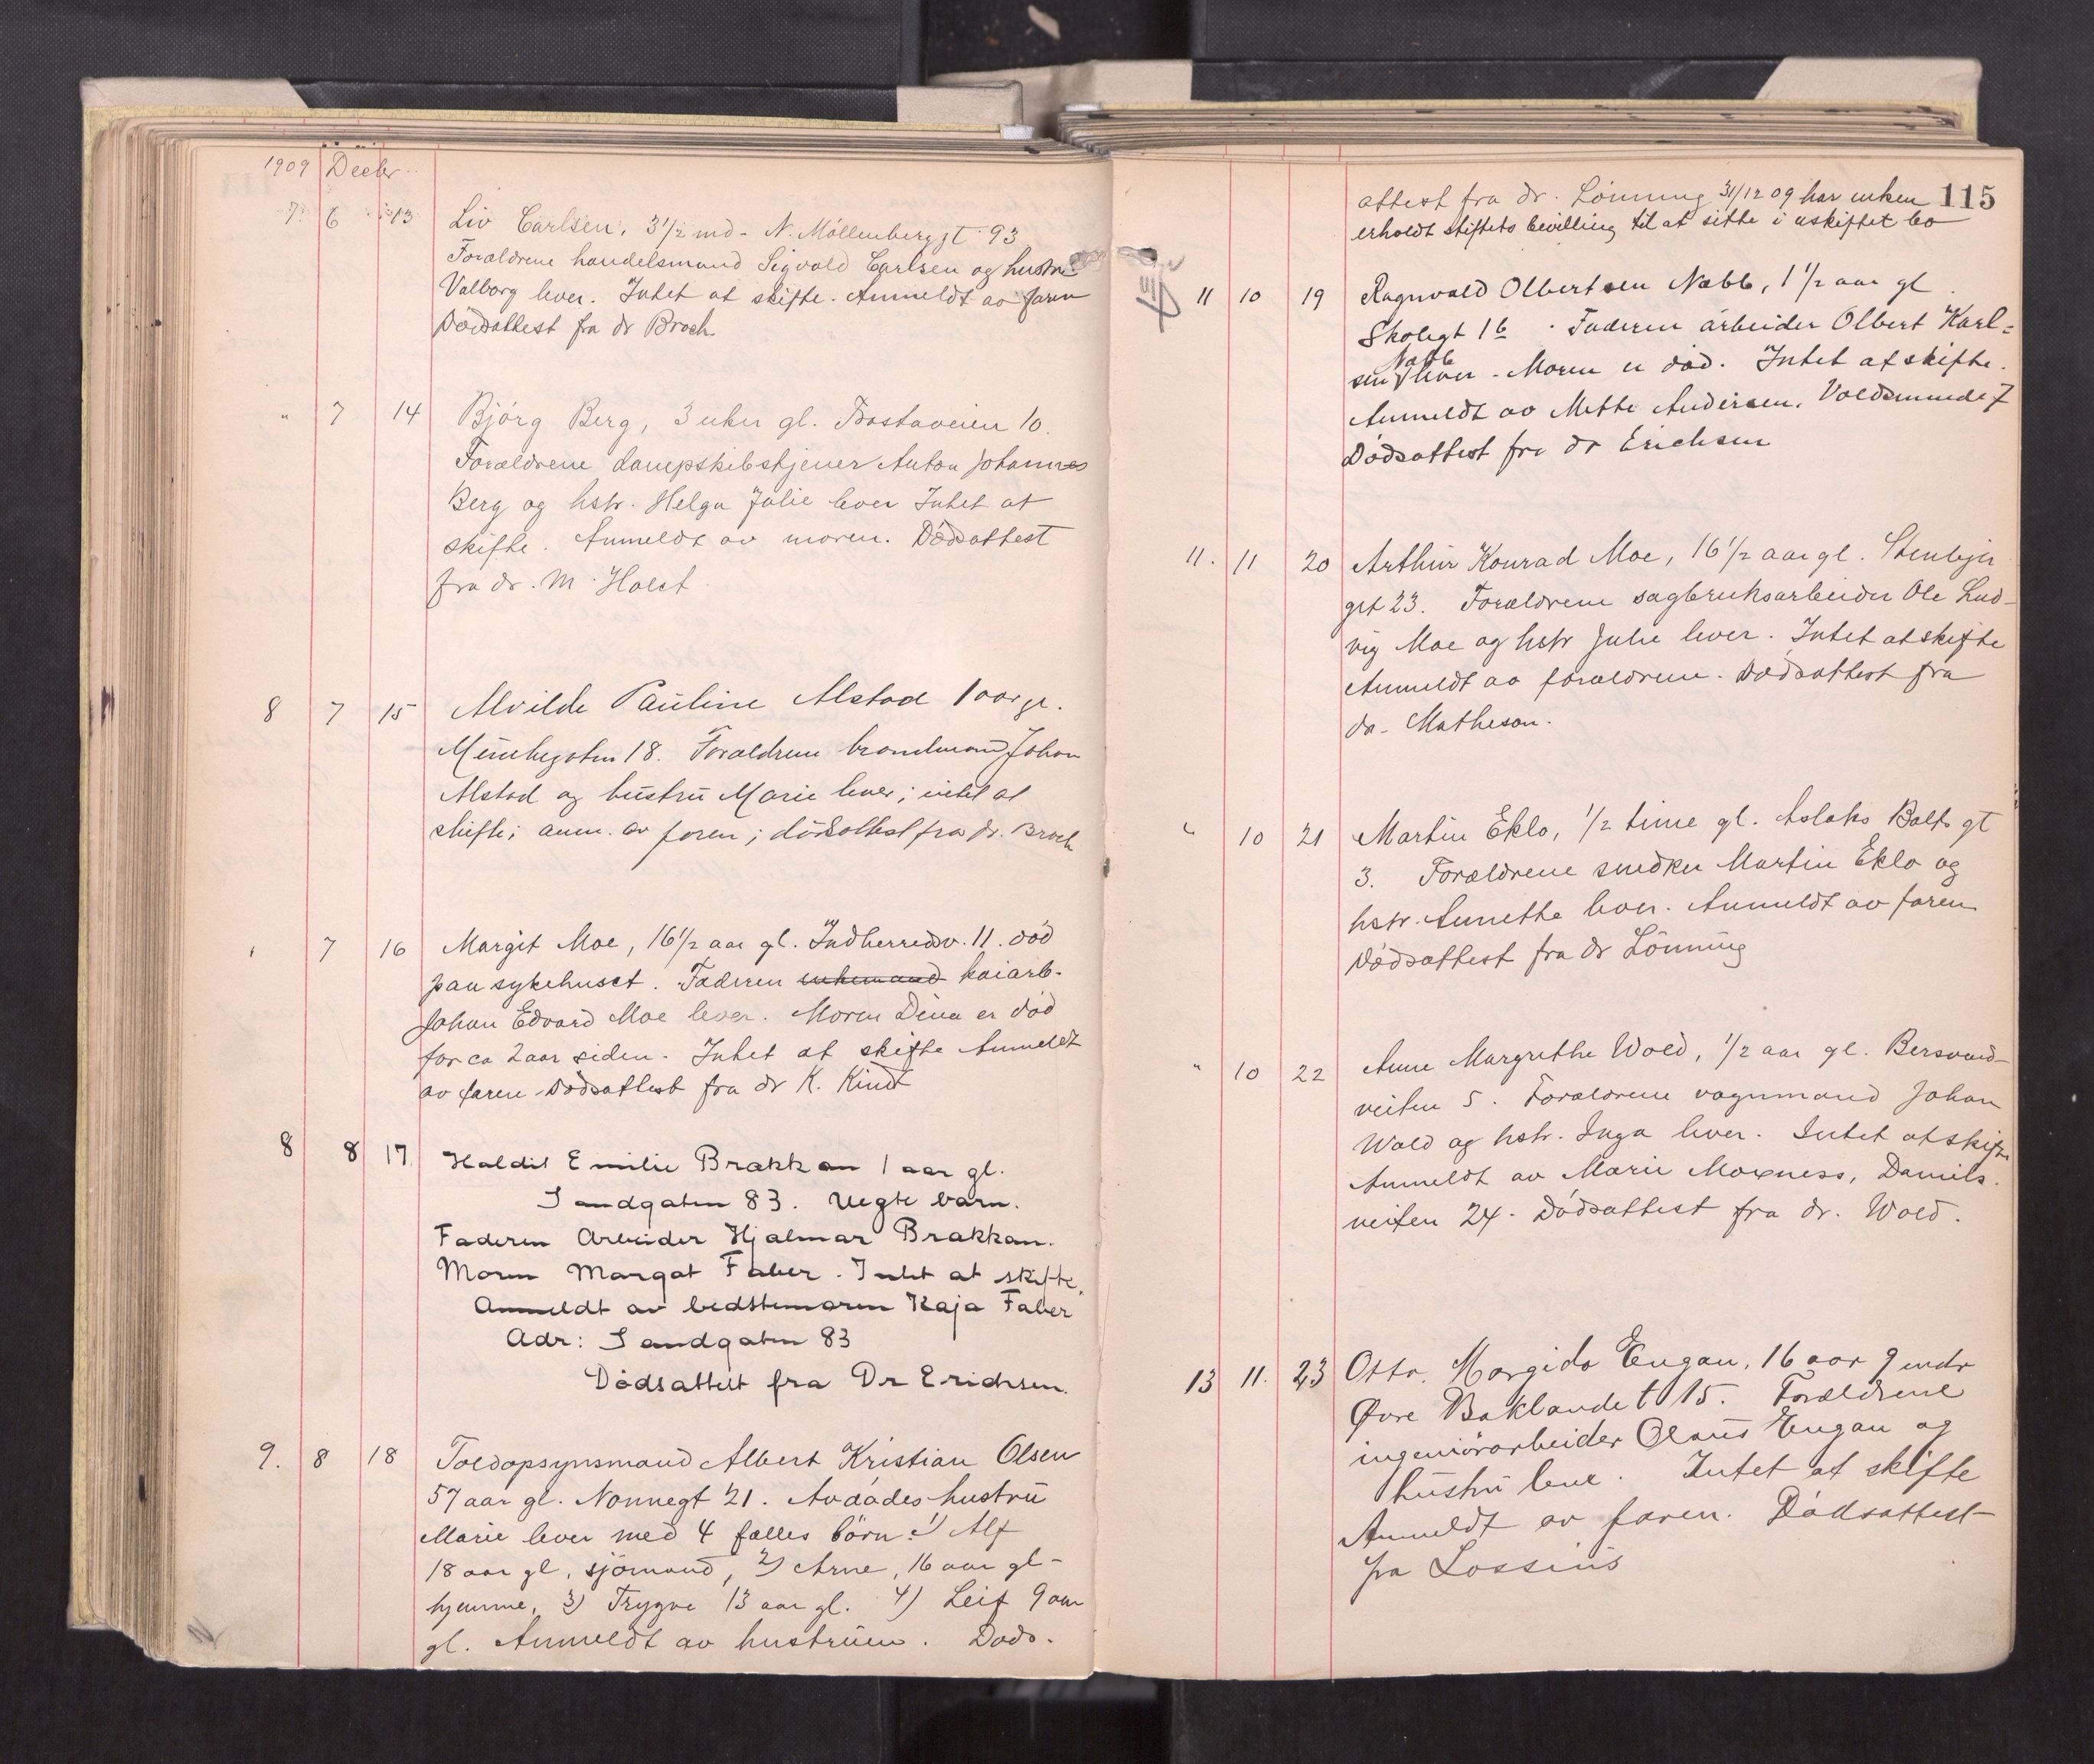 1909 Decbr.
7. 6 13 Liv Carlsen, 3 1/2 md. N. Möllenberggt 93
Forældrene handelsmand Sigvald Carlsen og hustru
Valborg lever. Intet at skifte. Anmeldt av faren
Dødsattest fra dr Broch
" 7 14 Bjórg Berg, 3 uker gl. Rostaveien 10.
Forældrene dampskibstjener Anton Johannes
Berg og hstr. Helga Julie lever Intet at
skifte. Anmeldt av moren. Dødsattest
fra dr. M. Holst
8 7 15 Alvilde Pauline Alstad 1 aar gl.
Munkegaten 18. Forældrene brandmand Johan
Alstad og hustru Marie lever; intet at
skifte; anm. av faren; dødsattest fra dr. Broch
" 7 16 Margit Moe, 16 1/2 aar gl. Indherredsv. 11. død
paa sykehuset. Faderen kaiarb.
Johan Edvard Moe lever. Moren Dina er død
for ca 2 aar siden. Intet at skifte Anmeldt
av faren Dødsattest fra dr K. Kindt
8 8 17 Haldis Emilie Brakkan 1 aar gl.
Sandgaten 83. Uegte barn.
Faderen Arbeider Hjalmar Brakkan.
Moren Margot Faber. Intet at skifte.
Anmeldt av bedstemoren Kaja Faber
Adr: Sandgaten 83
Dødsattest fra Dr Erichsen.
9. 8 18 Toldopsynsmand Albert Kristian Olsen
57 aar gl. Nonnegt 21. Avdødes hustru
Marie lever med 4 fælles börn: 1) Alf
18 aar gl, sjömand, 2) Arne, 16 aar gl-
hjemme, 3) Trygve 13 aar gl. 4) Leif 9 aar
gl. Anmeldt av hustruen. Döds-
115
attest fra dr. Lönning 31/12 09 har enken
erholdt stiftets bevilling til at sitte i uskiftet bo
11 10 19 Ragnvald Olbertsen Nabb, 1 1/2 aar gl.
Skolegt 16. Faderen arbeider Olbert Karl=
sen Nabb lever. Moren er död. Intet at skifte.
Anmeldt av Mette Andersen, Voldsminde 7
Dödsattest fra dr Erichsen
11. 11 20 Arthur Konrad Moe, 16 1/2 aar gl. Stenbjer
get 23. Forældrene sagbruksarbeider Ole Lud-
vig Moe og hstr Julie lever. Intet at skifte
Anmeldt av forældrene. Dødsattest fra
dr. Matheson.
" 10 21 Martin Eklo, 1/2 time gl. Aslaks Bolts gt
3. Forældrene snedker Martin Eklo og
hstr. Annette lever. Anmeldt av faren
Dødsattest fra dr Lönning
" 10 22 Anne Margrethe Wold, 1/2 aar gl. Bersvend-
veiten 5. Forældrene vognmand Johan
Wold og hstr. Inga lever. Intet at skifte
Anmeldt av Marie Moxness, Daniels-
veiten 24. Dödsattest fra dr. Wold.
13 11. 23 Otto. Margido Engan, 16 aar 9 mdr
Øvre Baklandet 15. Forældrene
ingeniörarbeider Olaus Engan og
hustru leve. Intet at skifte
Anmeldt av faren. Dödsattest
fra Lossius